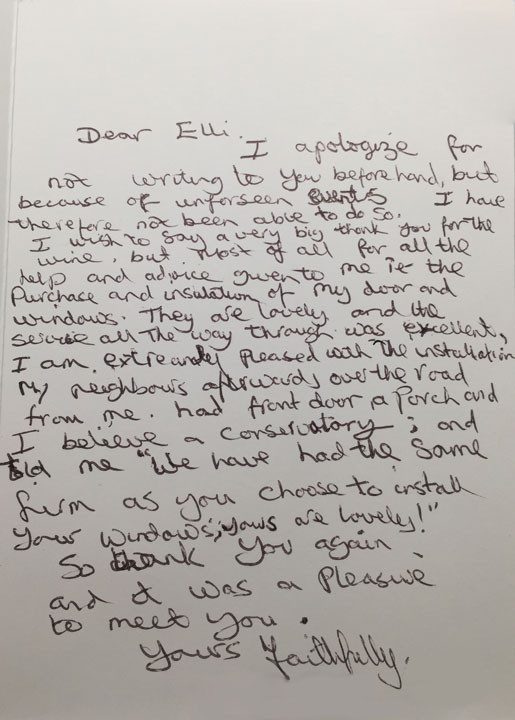 Dear Elli.
I apologize for
not writing to you beforehand, but
because of unforseen events I have
therefore not been able to do so.
I wish to say a very big thank you for the
wine, but most of all for all the
help and advice given to me ie the
Purchase and insulation of my door and
windows. They are lovely and the
service all the way through was excellent,
I am extreamly pleased with the installation
My neighbours afterwards over the road
from me. had front door, a Porch and
I believe a conservatory; and
told me "We have had the same
firm as you choose to install
your windows; yours are lovely!"
So thank you again
and it was a pleasure
to meet you.
Yours Faithfully.